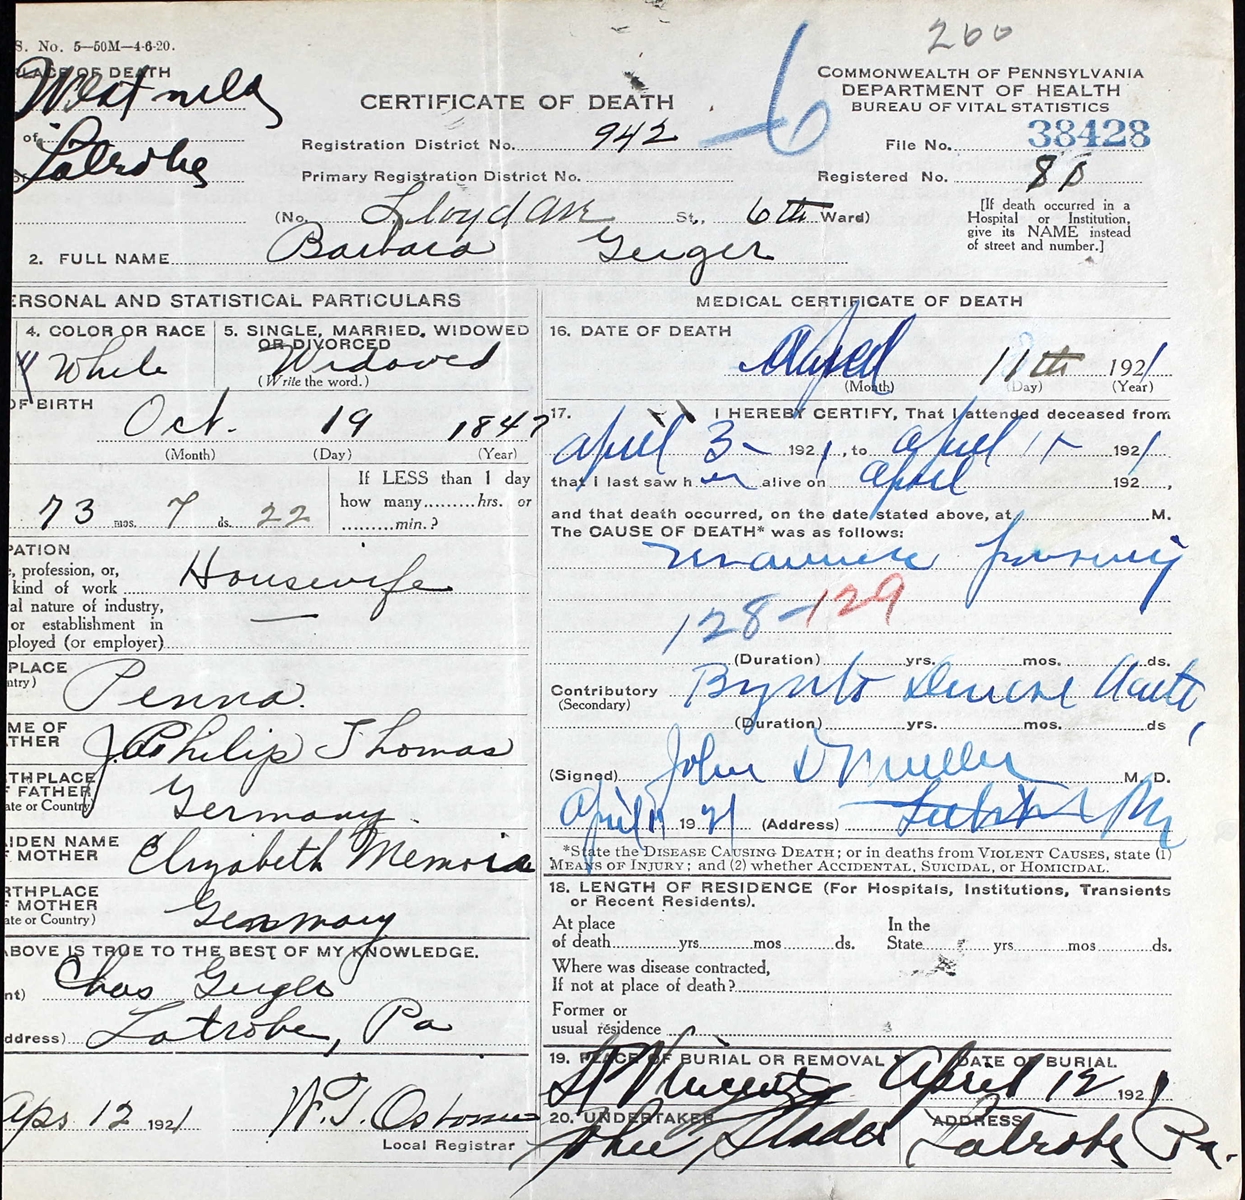 S. No. 5—50M—4-6-20.
260
PLACE OF DEATH
Westmld
of
Latrobe
or
CERTIFICATE OF DEATH
6
COMMONWEALTH OF PENNSYLVANIA
DEPARTMENT OF HEALTH
BUREAU OF VITAL STATISTICS
Registration District No. 942
File No. 38428
Primary Registration District No.
Registered No. 
(No. Lloyd Ave St., 6th Ward)
[If death occurred in a
Hospital or Institution,
give its NAME instead
of street and number.]
2. FULL NAME Barbara Geiger
ERSONAL AND STATISTICAL PARTICULARS
4. COLOR OR RACE
White
5. SINGLE, MARRIED, WIDOWED
OR DIVORCED
Widowed
(Write the word.)
OF BIRTH
Oct. 19 1847
(Month) (Day) (Year)
73 mos. 7 ds. 22
If LESS than 1 day
how many........hrs. or
........min.?
PATION
e, profession, or,
kind of work Housewife
al nature of industry,
or establishment in
ployed (or employer)
PLACE
ntry) Penna.
ME OF
THER J. Philip Thomas
THPLACE
F FATHER
ate or Country) Germany.
IDEN NAME
F MOTHER Elizabeth
RTHPLACE
F MOTHER
ate or Country) Germany
ABOVE IS TRUE TO THE BEST OF MY KNOWLEDGE.
nt) Chas Geiger
ddress) Latrobe, Pa
Apr 12 1921 W. T. Osborne
Local Registrar
MEDICAL CERTIFICATE OF DEATH
16. DATE OF DEATH
April 11th 1921
(Month) (Day) (Year)
17. I HEREBY CERTIFY, That I attended deceased from
april 3 1921, to april 11 1921
that I last saw her alive on april 192 ,
and that death occurred, on the date stated above, at M.
The CAUSE OF DEATH* was as follows:
128-129
(Duration) yrs. mos. ds.
Contributory
(Secondary)
(Duration) yrs. mos. ds
(Signed) John D Mueller M. D.
April 1921 (Address)
*State the DISEASE CAUSING DEATH; or in deaths from VIOLENT CAUSES, state (1)
MEANS OF INJURY; and (2) whether ACCIDENTAL, SUICIDAL, or HOMICIDAL.
18. LENGTH OF RESIDENCE (For Hospitals, Institutions, Transients
or Recent Residents).
At place
of death yrs mos ds.
In the
State yrs mos ds.
Where was disease contracted,
If not at place of death?
Former or
usual residence
19. PLACE OF BURIAL OR REMOVAL
St Vincents
DATE OF BURIAL.
April 12 1921
20. UNDERTAKER
ADDRESS
Latrobe Pa.